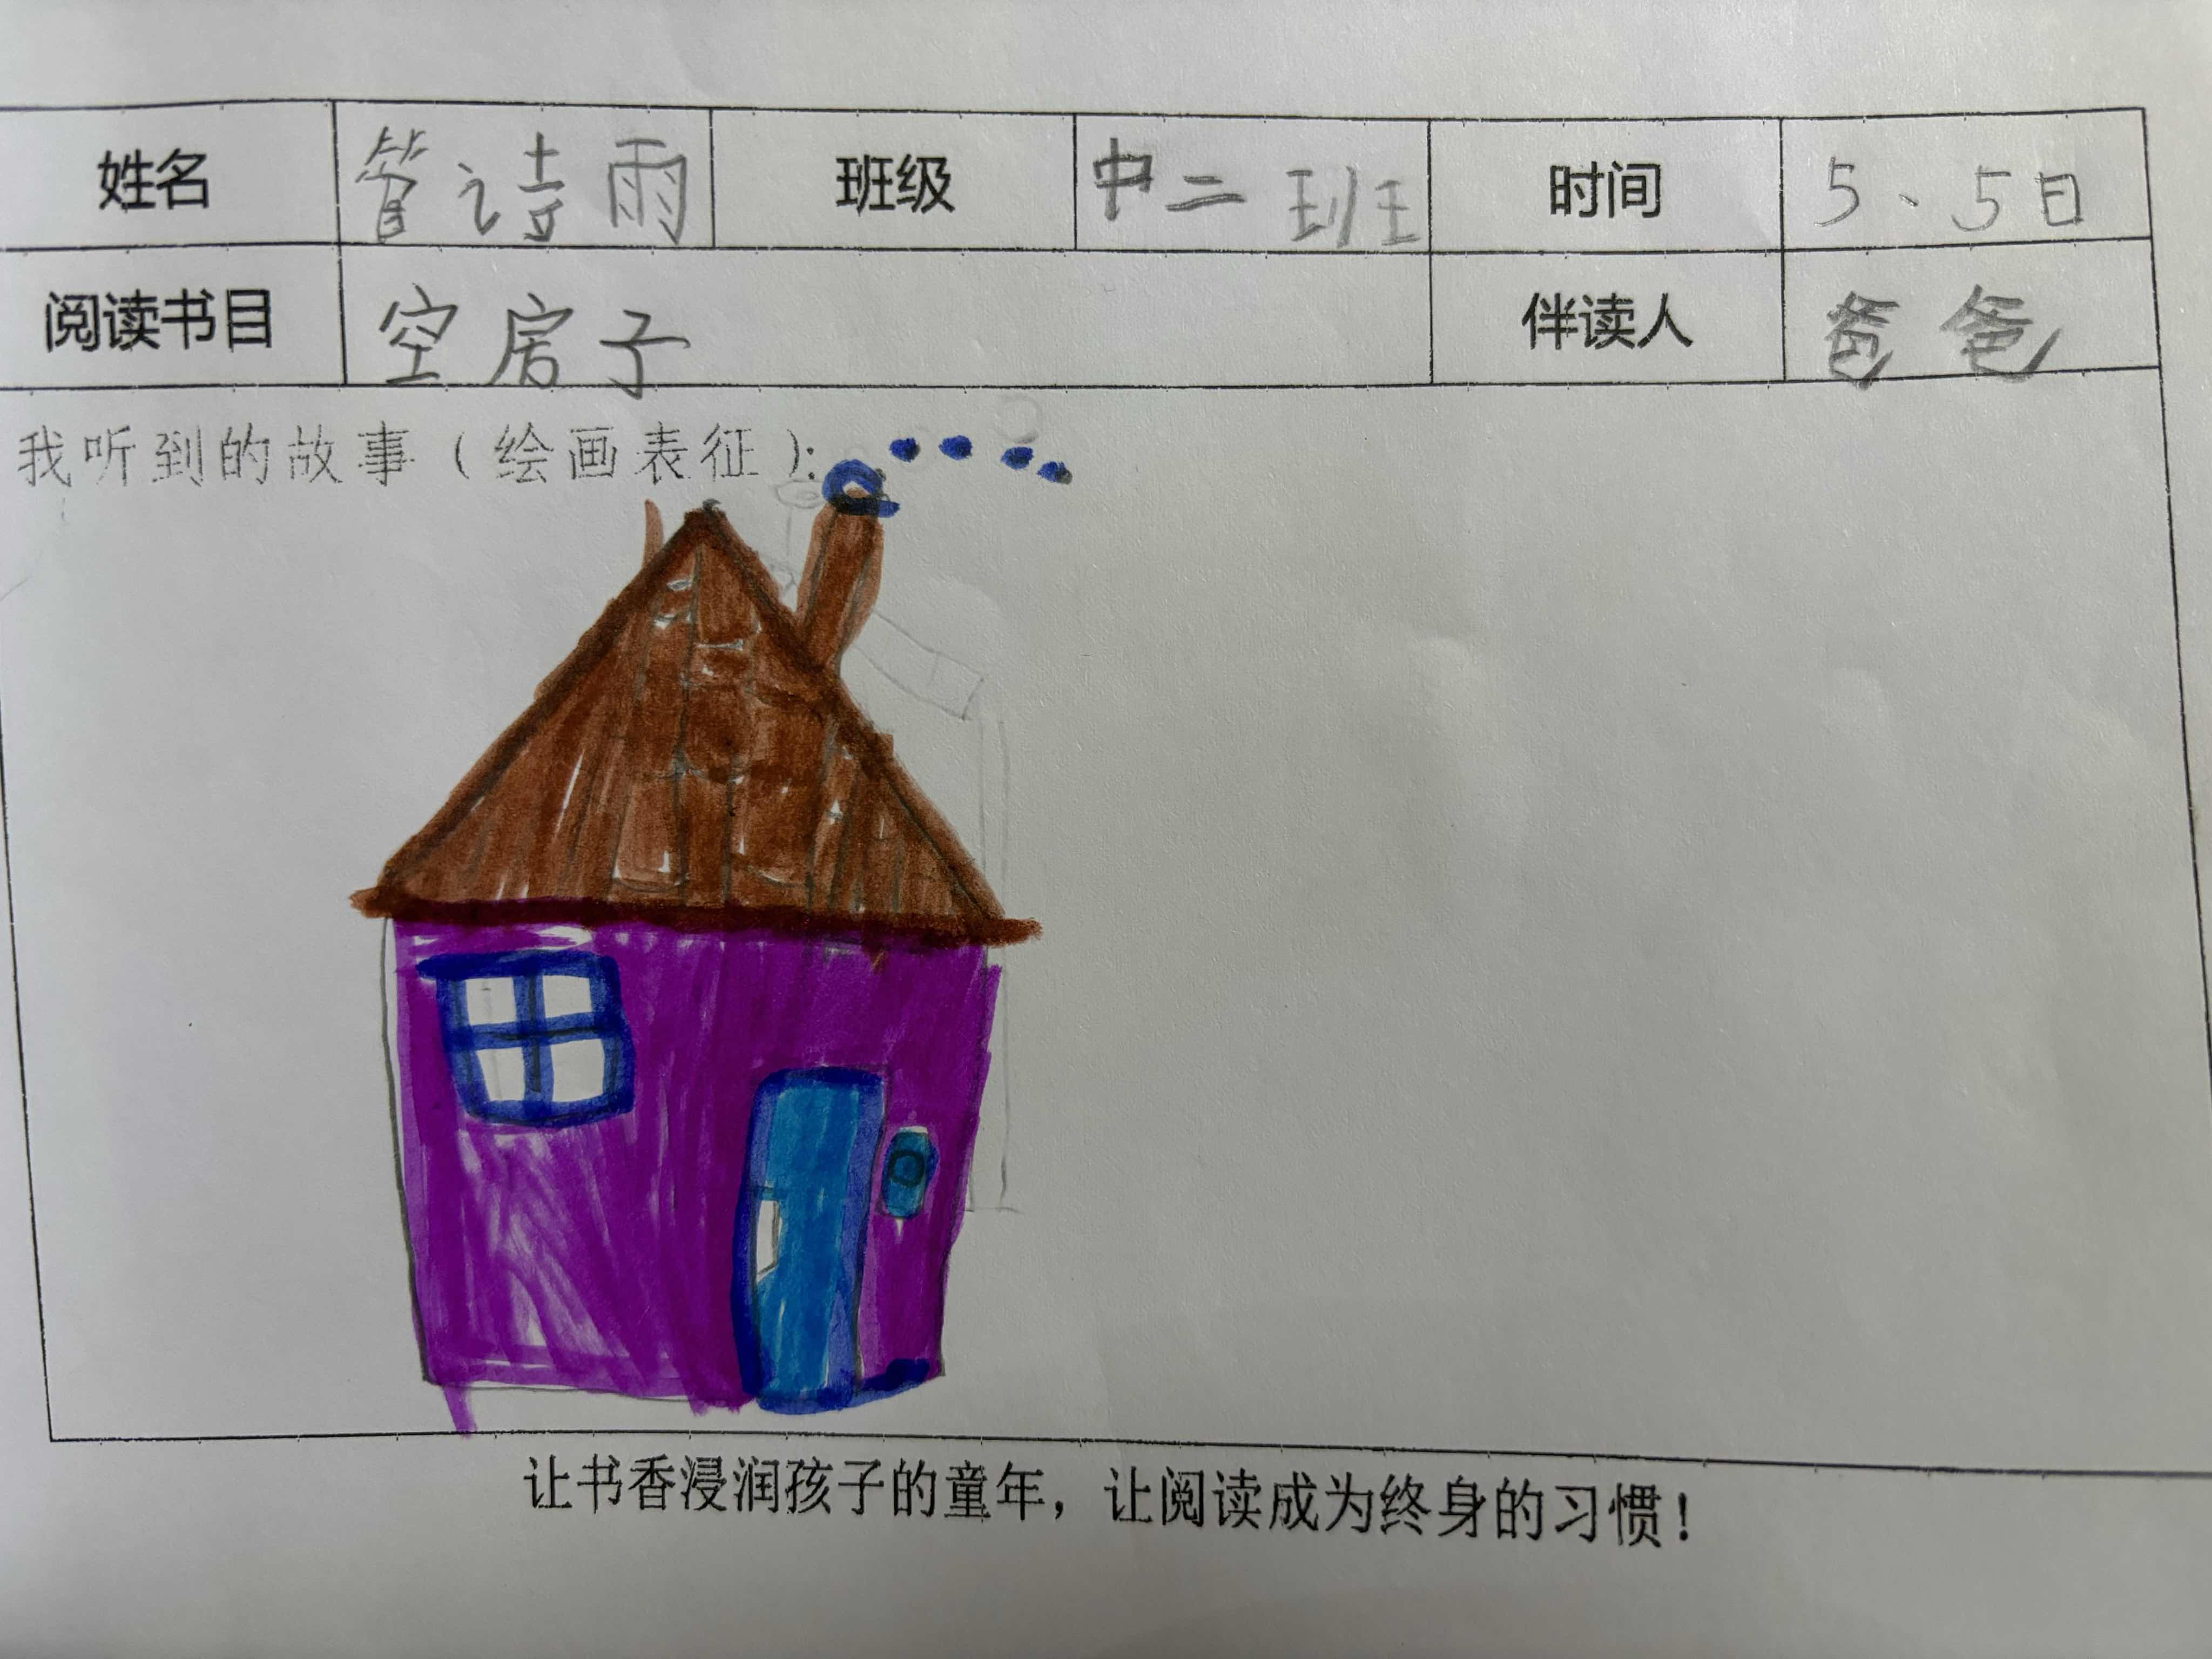 姓名 管诗雨 班级 中二班 时间 5、5日
阅读书目 空房子 伴读人 爸爸
我听到的故事（绘画表征）：
让书香浸润孩子的童年，让阅读成为终身的习惯！